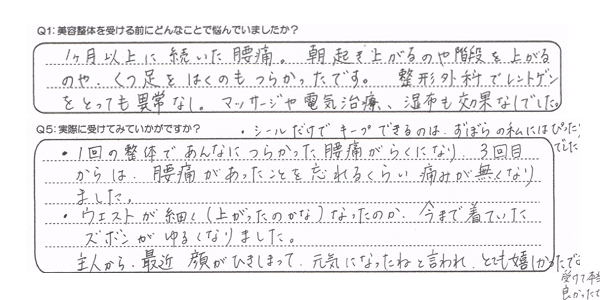 Q1:美容整体を受ける前にどんなことで悩んでいましたか？
1ヶ月以上に続いた腰痛。朝起き上がるのや階段を上がる
のや、くつ足をはくのもつらかったです。整形外科でレントゲン
をとっても異常なし。マッサージや電気治療、湿布も効果なしでした。
Q5:実際に受けてみていかがですか？
・シールだけでキープできるのは、ずぼらの私にはぴったり
でした
・1回の整体であんなにつらかった腰痛がらくになり、3回目
からは、腰痛があったことを忘れるくらい痛みが無くなり
ました。
・ウエストが細く(上がったのかな)なったのか、今まで着ていた
ズボンがゆるくなりました。
主人から、最近顔がひきしまって、元気になったねと言われ、とても嬉しかったで
受けて本
良かったで